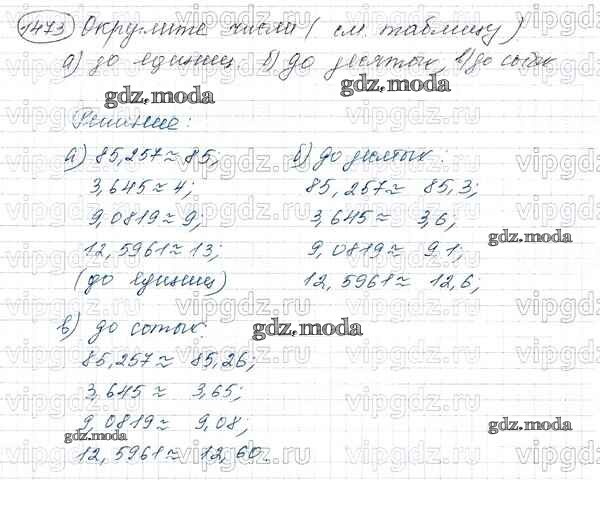 1473 Округлите числа (см. таблицу)
а) до единиц. б) до десятых, в) до сотых
gdz.moda gdz.moda
Решение:
а) 85,257 ≈ 85;
3,645 ≈ 4;
9,0819 ≈ 9;
12,5961 ≈ 13;
(до единиц)
б) до десятых:
85,257 ≈ 85,3;
3,645 ≈ 3,6;
gdz.moda
9,0819 ≈ 9,1;
12,5961 ≈ 12,6;
в) до сотых:
gdz.moda
85,257 ≈ 85,26;
3,645 ≈ 3,65;
9,0819 ≈ 9,08;
gdz.moda gdz.moda
12,5961 ≈ 12,60.
vipgdz.ru